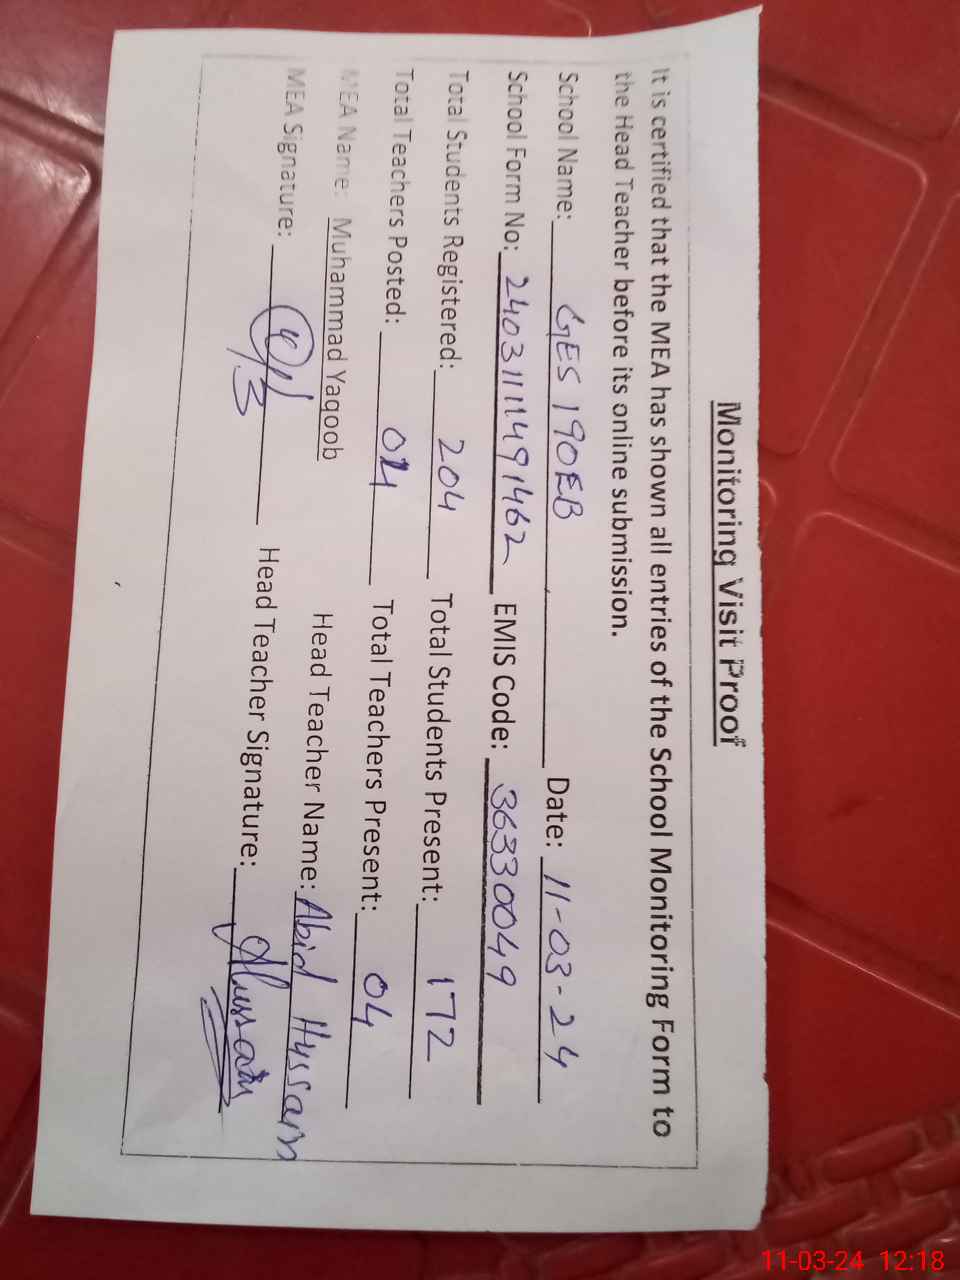 Monitoring Visit Proof
It is certified that the MEA has shown all entries of the School Monitoring Form to
the Head Teacher before its online submission.
School Name: GES 190EB Date: 11-03-24
School Form No: 2403111491462 EMIS Code: 36330049
Total Students Registered: 204 Total Students Present: 172
Total Teachers Posted: 04 Total Teachers Present: 04
MEA Name: Muhammad Yaqoob Head Teacher Name: Abid Hussain
MEA Signature: Head Teacher Signature: AHussain
11-03-24 12:18